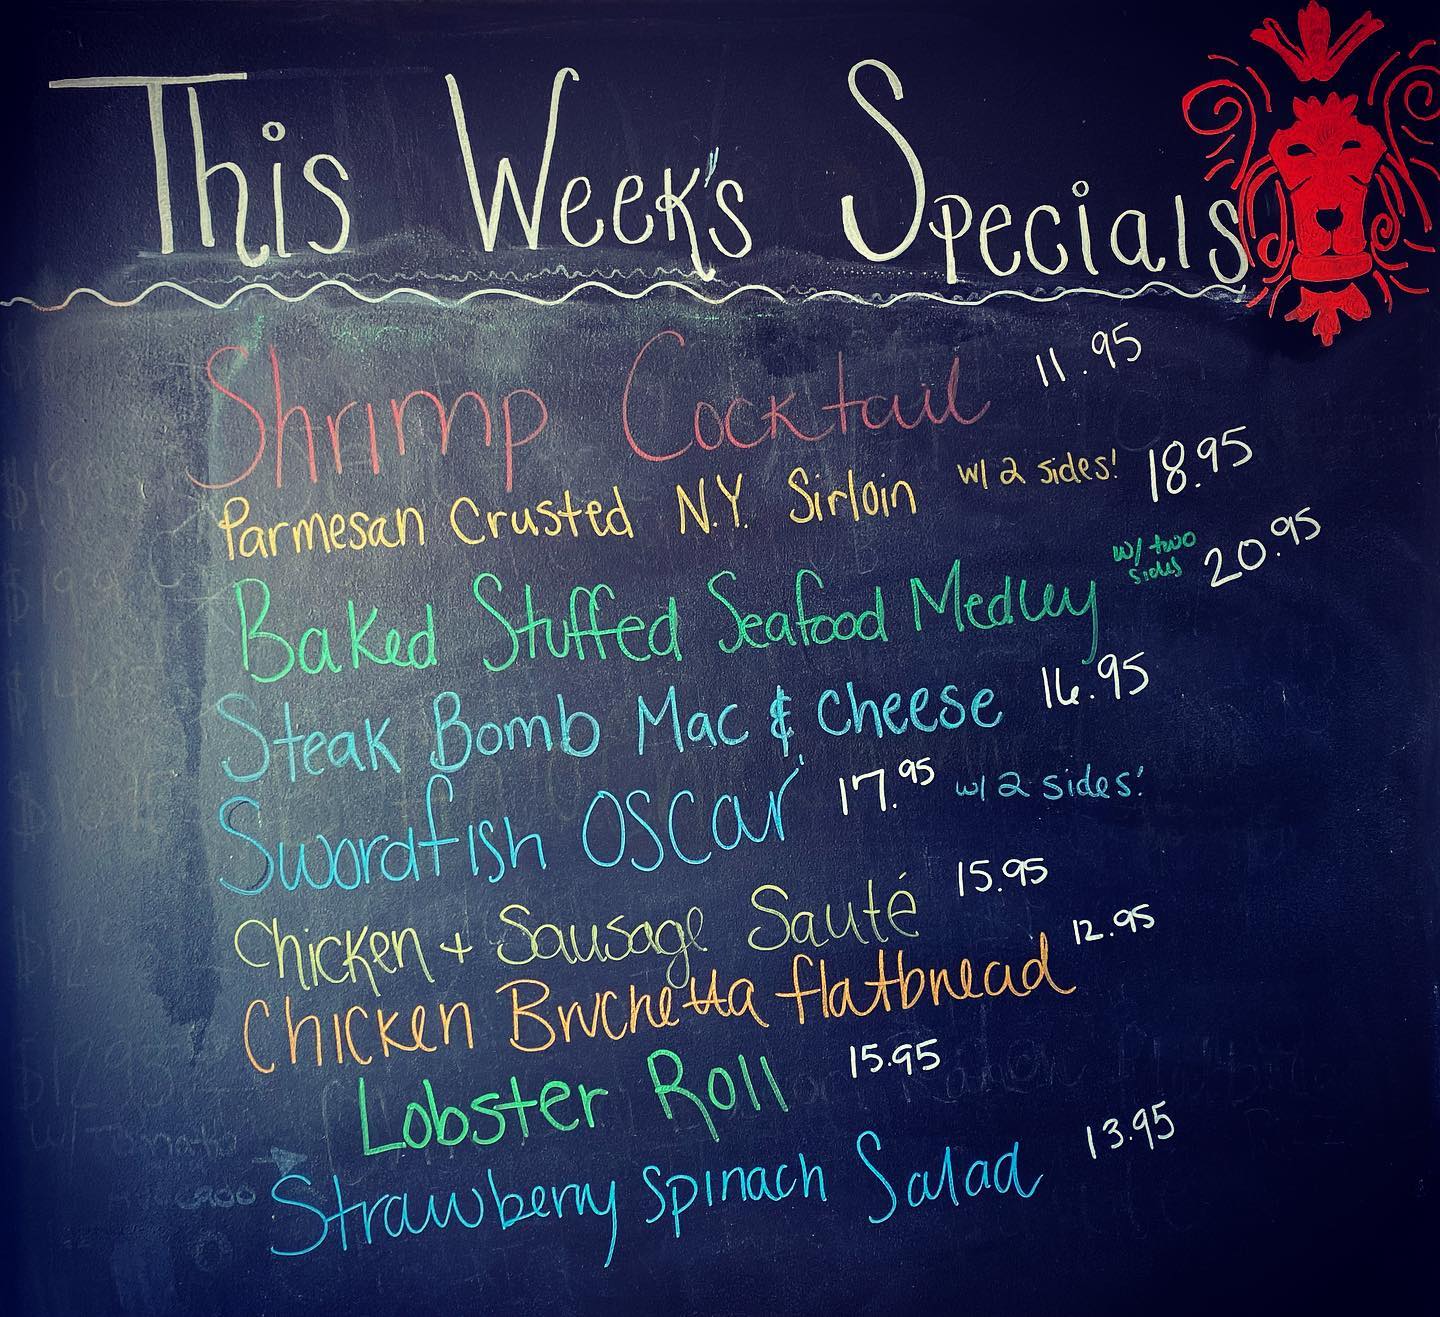 This Week's Specials
Shrimp Cocktail 11.95
Parmesan Crusted N.Y. Sirloin w/ 2 sides! 18.95
Baked Stuffed Seafood Medley w/ two sides 20.95
Steak Bomb Mac & Cheese 16.95
Swordfish Oscar 17.95 w/ 2 sides!
Chicken + Sausage Sauté 15.95
Chicken Bruchetta flatbread 12.95
Lobster Roll 15.95
Strawberry Spinach Salad 13.95